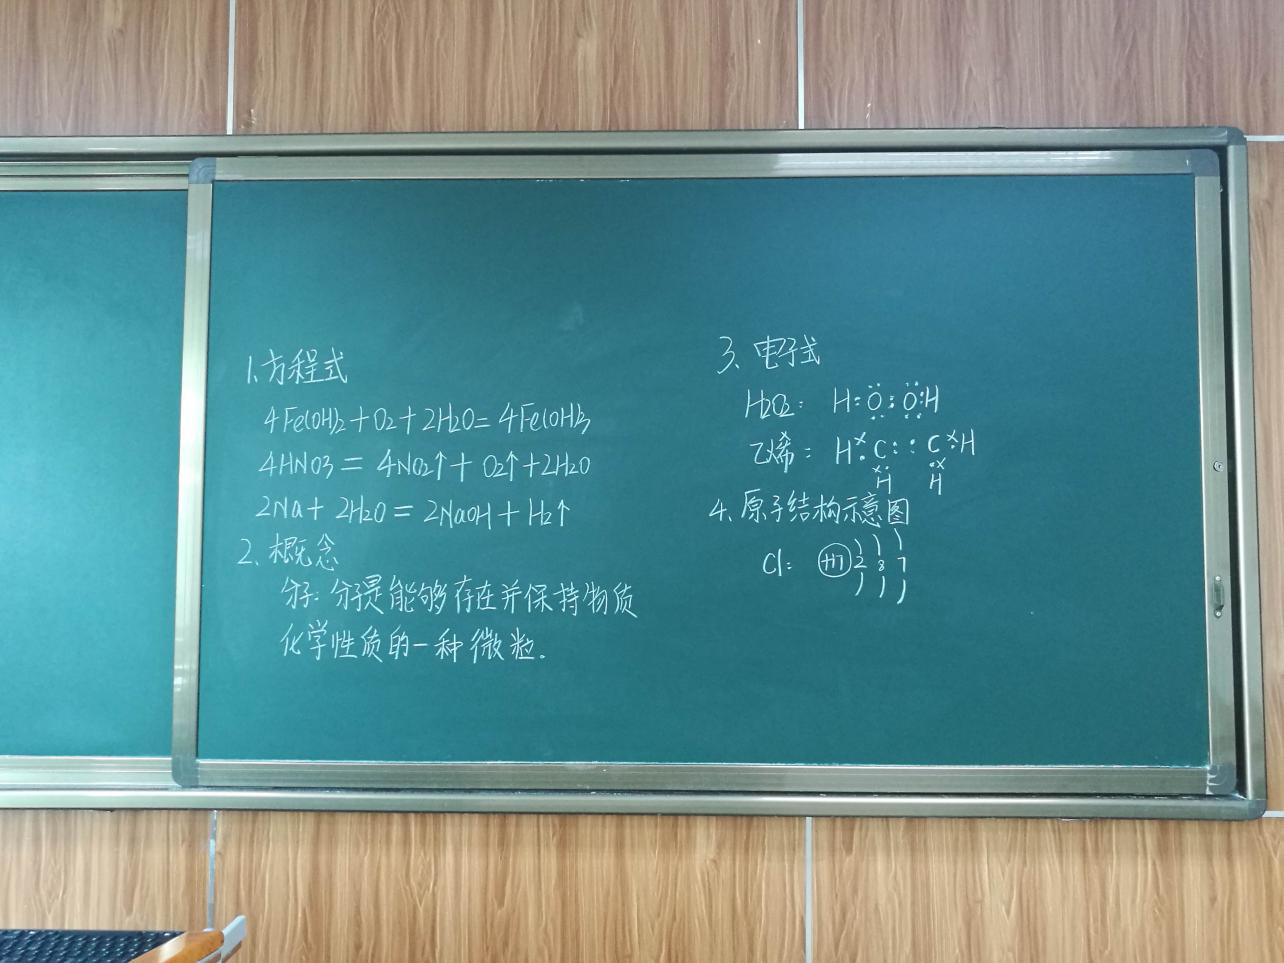 1、方程式
4Fe(OH)2+O2+2H2O=4Fe(OH)3
4HNO3=4NO2↑+O2↑+2H2O
2Na+2H2O=2NaOH+H2↑
2、概念
分子:分子是能够存在并保持物质
化学性质的一种微粒.
3、电子式
H2O2: H:O:O:H
乙烯: H:C::C:H
H H
4、原子结构示意图
Cl: +17 2 8 7